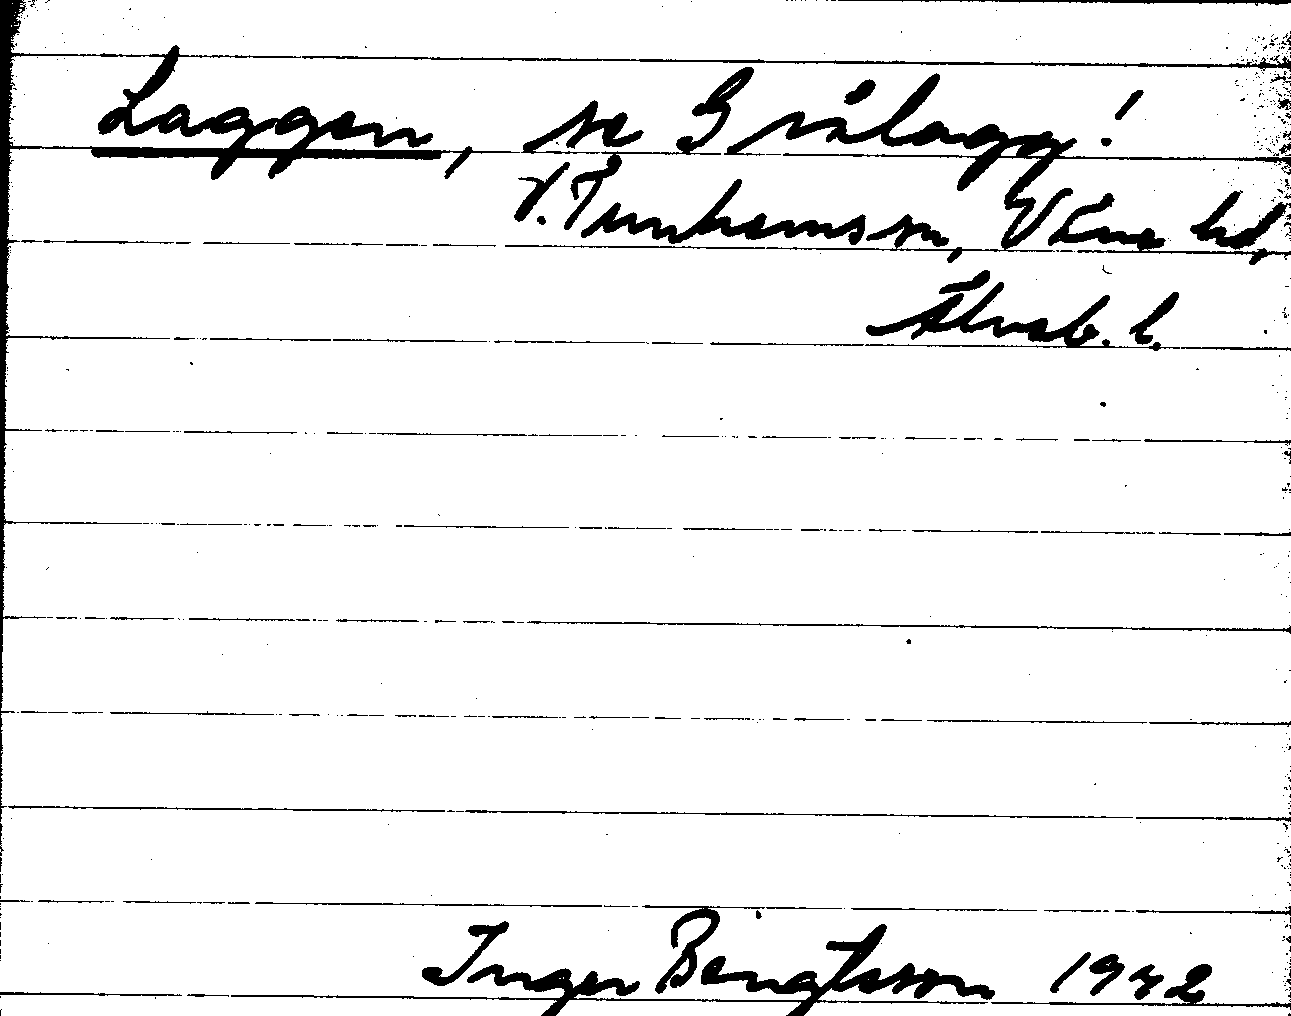 Laggen, se Grålagg!
V. Tunhems sn, Väne hd,
Älvsb. l.
Inger Bengtsson 1942